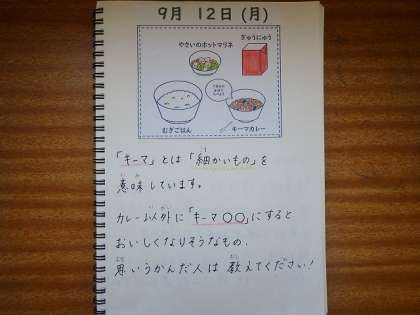 9月 12日 (月)
やさいのホットマリネ
ぎゅうにゅう
むぎごはん
キーマカレー
「キーマ」とは「細かいもの」を
意味しています。
カレー以外に「キーマ〇〇」にすると
おいしくなりそうなもの、
思いうかんだ人は 教えてください!